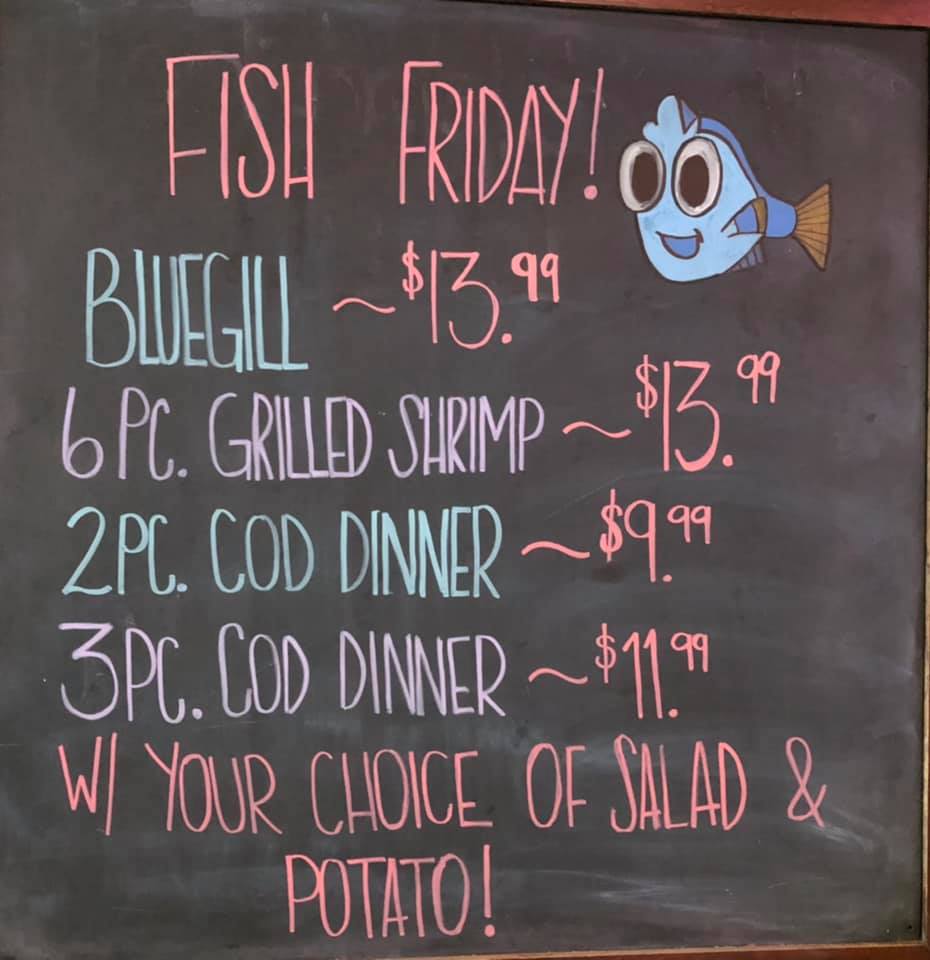 FISH FRIDAY!
BLUEGILL ~ $13.99
6 PC. GRILLED SHRIMP ~ $13.99
2 PC. COD DINNER ~ $9.99
3 PC. COD DINNER ~ $11.99
W/ YOUR CHOICE OF SALAD &
POTATO!